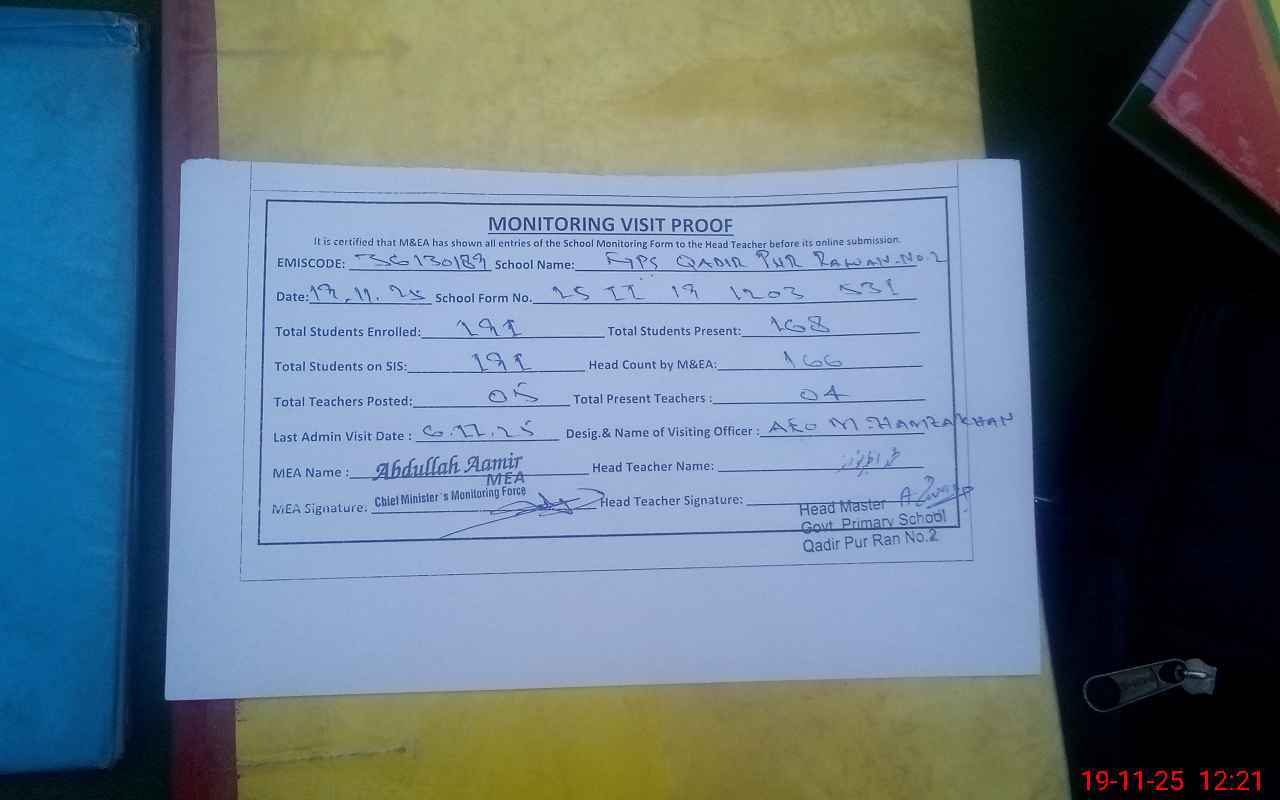 MONITORING VISIT PROOF
It is certified that M&EA has shown all entries of the School Monitoring Form to the Head Teacher before its online submission.
EMISCODE: 36130189 School Name: GPS QADIR PUR RAWAN.No.2
Date: 19.11.25 School Form No. 25 11 19 1203 531
Total Students Enrolled: 191 Total Students Present: 168
Total Students on SIS: 191 Head Count by M&EA: 166
Total Teachers Posted: 05 Total Present Teachers : 04
Last Admin Visit Date : 6.11.25 Desig.& Name of Visiting Officer : AEO M.HAMZA KHAN
MEA Name : Abdullah Aamir Head Teacher Name:
MEA
MEA Signature: Chief Minister's Monitoring Force Head Teacher Signature:
Head Master
Govt. Primary School
Qadir Pur Ran No.2
19-11-25 12:21